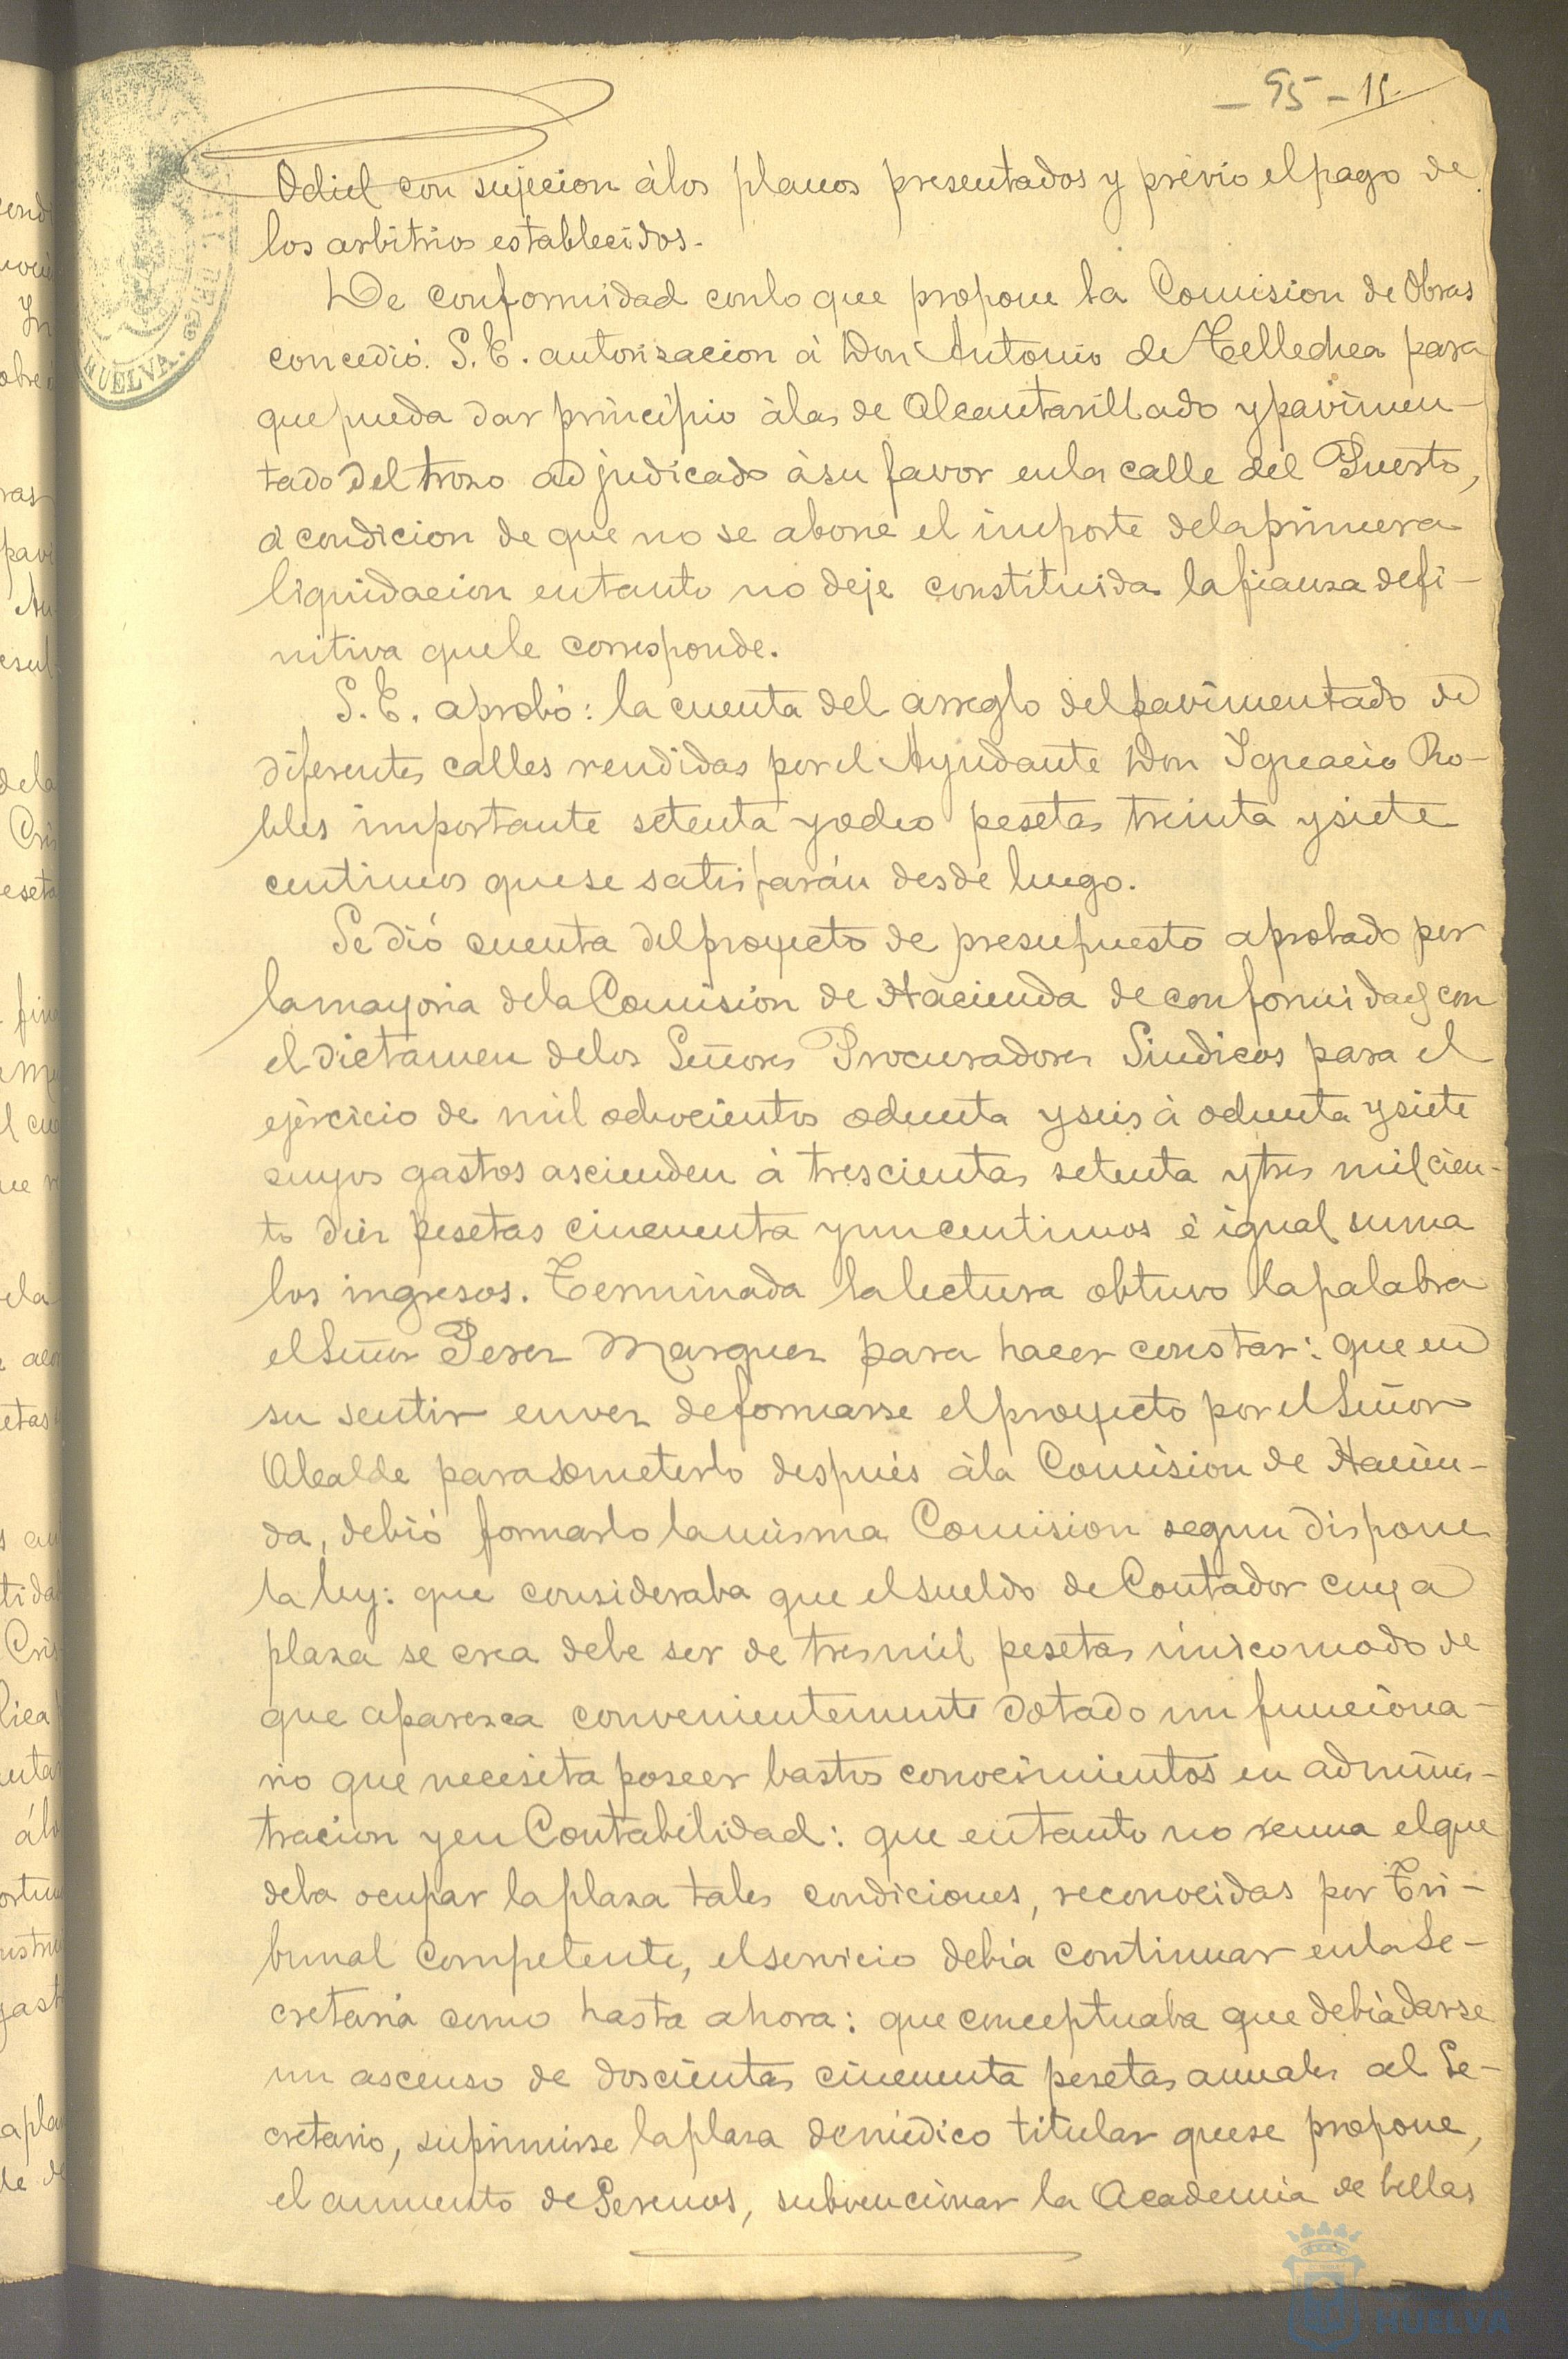 - 95 - 15.
Odiel con sujecion álos planos presentados y prévio el pago de
los arbitrios establecidos.
De conformidad conlo que propone la Comision de Obras
concedió S. E. autorizacion á Don Antonio de Tellechea para
que pueda dar principio álas de Alcantarillado y pavimen-
tado del trozo adjudicado ásu favor enla calle del Puerto,
á condicion de que no se abone el importe dela primera
liquidacion entanto no deje constituida la fianza defi-
nitiva quele corresponde.
S. E. aprobó: la cuenta del arreglo del pavimentado de
diferentes calles rendidas por el Ayudante Don Ignacio Ro-
bles importante setenta y ocho pesetas treinta y siete
centimos quese satisfarán desde luego.
Se dió cuenta del proyecto de presupuesto aprobado por
la mayoria dela Comision de Hacienda de conformidad con
el dictamen delos Señores Procuradores Sindicos para el
ejércicio de mil ochocientos ochenta y seis á ochenta y siete
cuyos gastos ascienden á trescientas setenta y tres mil cien-
to diez pesetas cincuenta y un centimos é igual suma
los ingresos. Terminada la lectura obtuvo la palabra
el Señor Perez Marquez para hacer constar: que en
su sentir envez de formarse el proyecto por el Señor
Alcalde para someterlo después ála Comision de Hacien-
da, debió formarlo la misma Comision segun dispone
la ley: que consideraba que el sueldo de Contador cuya
plaza se crea debe ser de tres mil pesetas único modo de
que aparezca convenientemente dotado un funciona-
rio que necesita poseer bastos conocimientos en adminis-
tracion y en Contabilidad: que entanto no reuna el que
deba ocupar la plaza tales condiciones, reconocidas por Tri-
bunal competente, el servicio debia continuar enla Se-
cretaria como hasta ahora: que conceptuaba que debia darse
un ascenso de doscientas cincuenta pesetas anuales al Se-
cretario, suprimirse la plaza de médico titular quese propone,
el aumento de Serenos, subvencionar la Academia de bellas
HUELVA.
HUELVA